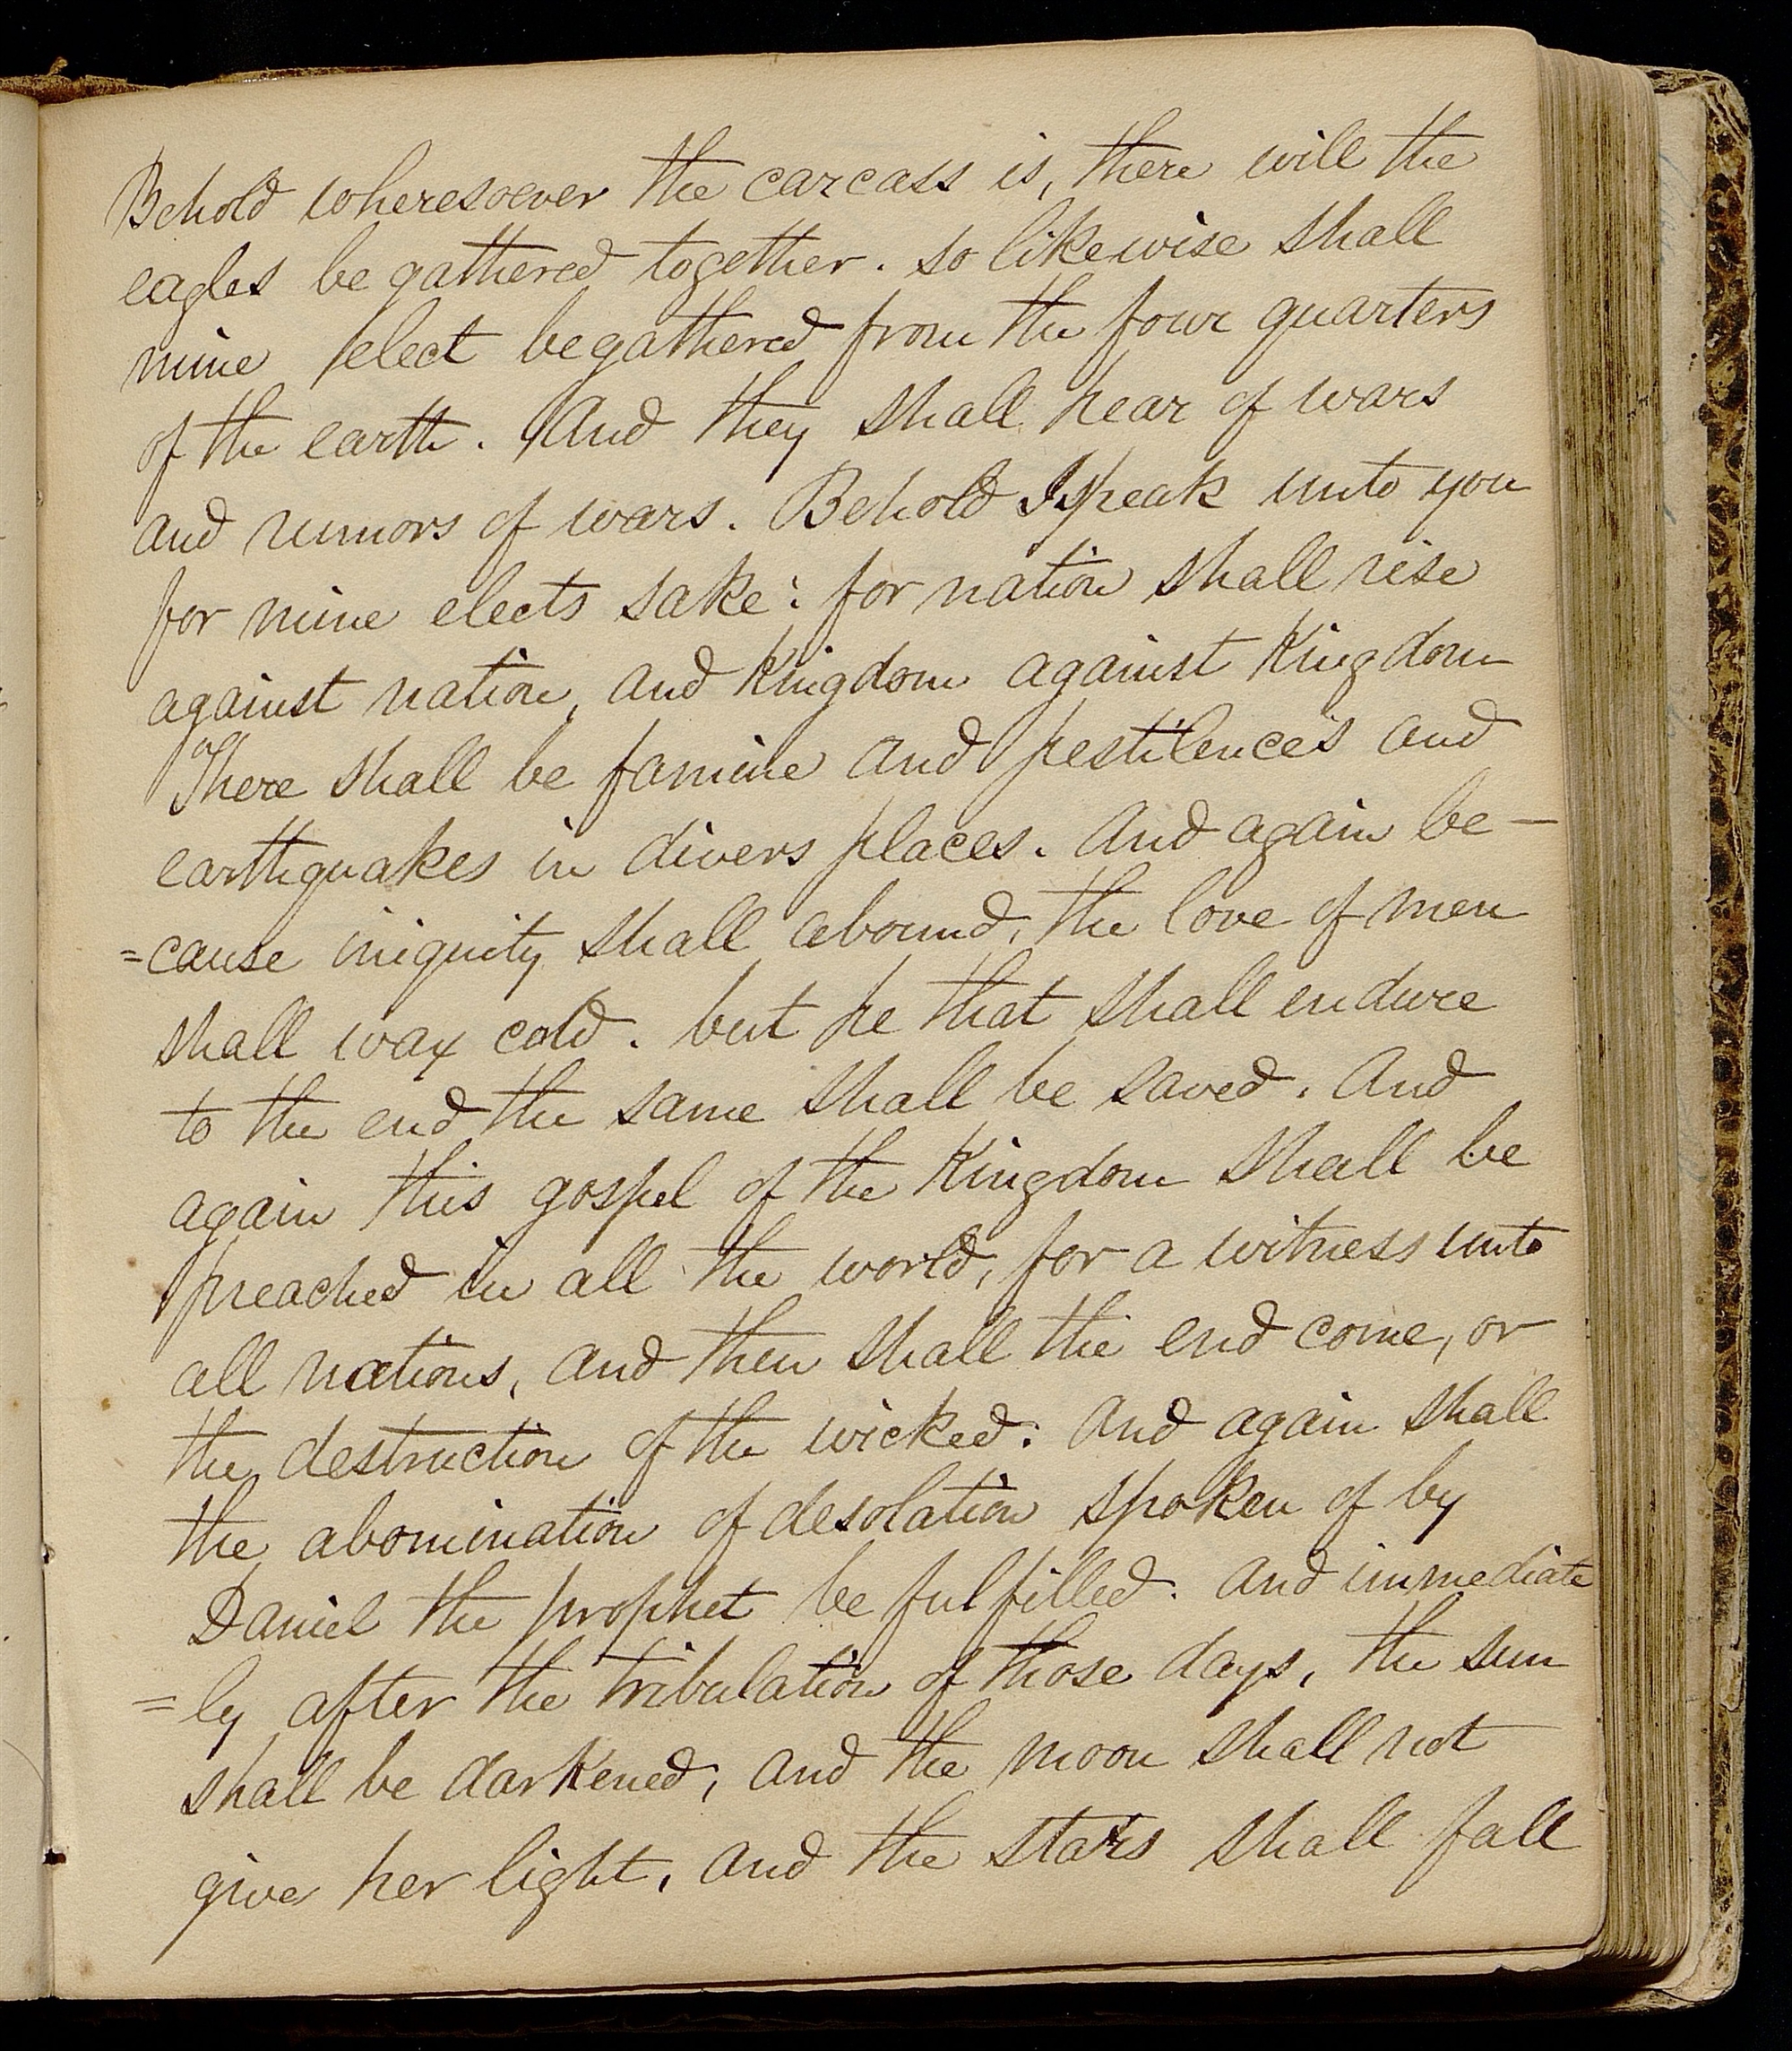 Behold wheresoever the carcass is, there will the
eagles be gathered together. so likewise shall
mine elect be gathered from the four quarters
of the earth. And they shall hear of wars
and rumors of wars. Behold I speak unto you
for mine elects sake: for nation shall rise
against nation, and Kingdom against Kingdom
There shall be famine and pestilences and
earthquakes in divers places. And again be-
=cause iniquity shall abound, the love of men
shall wax cold. but he that shall endure
to the end the same shall be saved. And
again this gospel of the Kingdom shall be
preached in all the world, for a witness unto
all nations, and then shall the end come, or
the destruction of the wicked: And again shall
the abomination of desolation spoken of by
Daniel the prophet be fulfilled. And immediate
=ly after the tribulation of those days, the sun
shall be darkened, and the moon shall not
give her light, and the stars shall fall